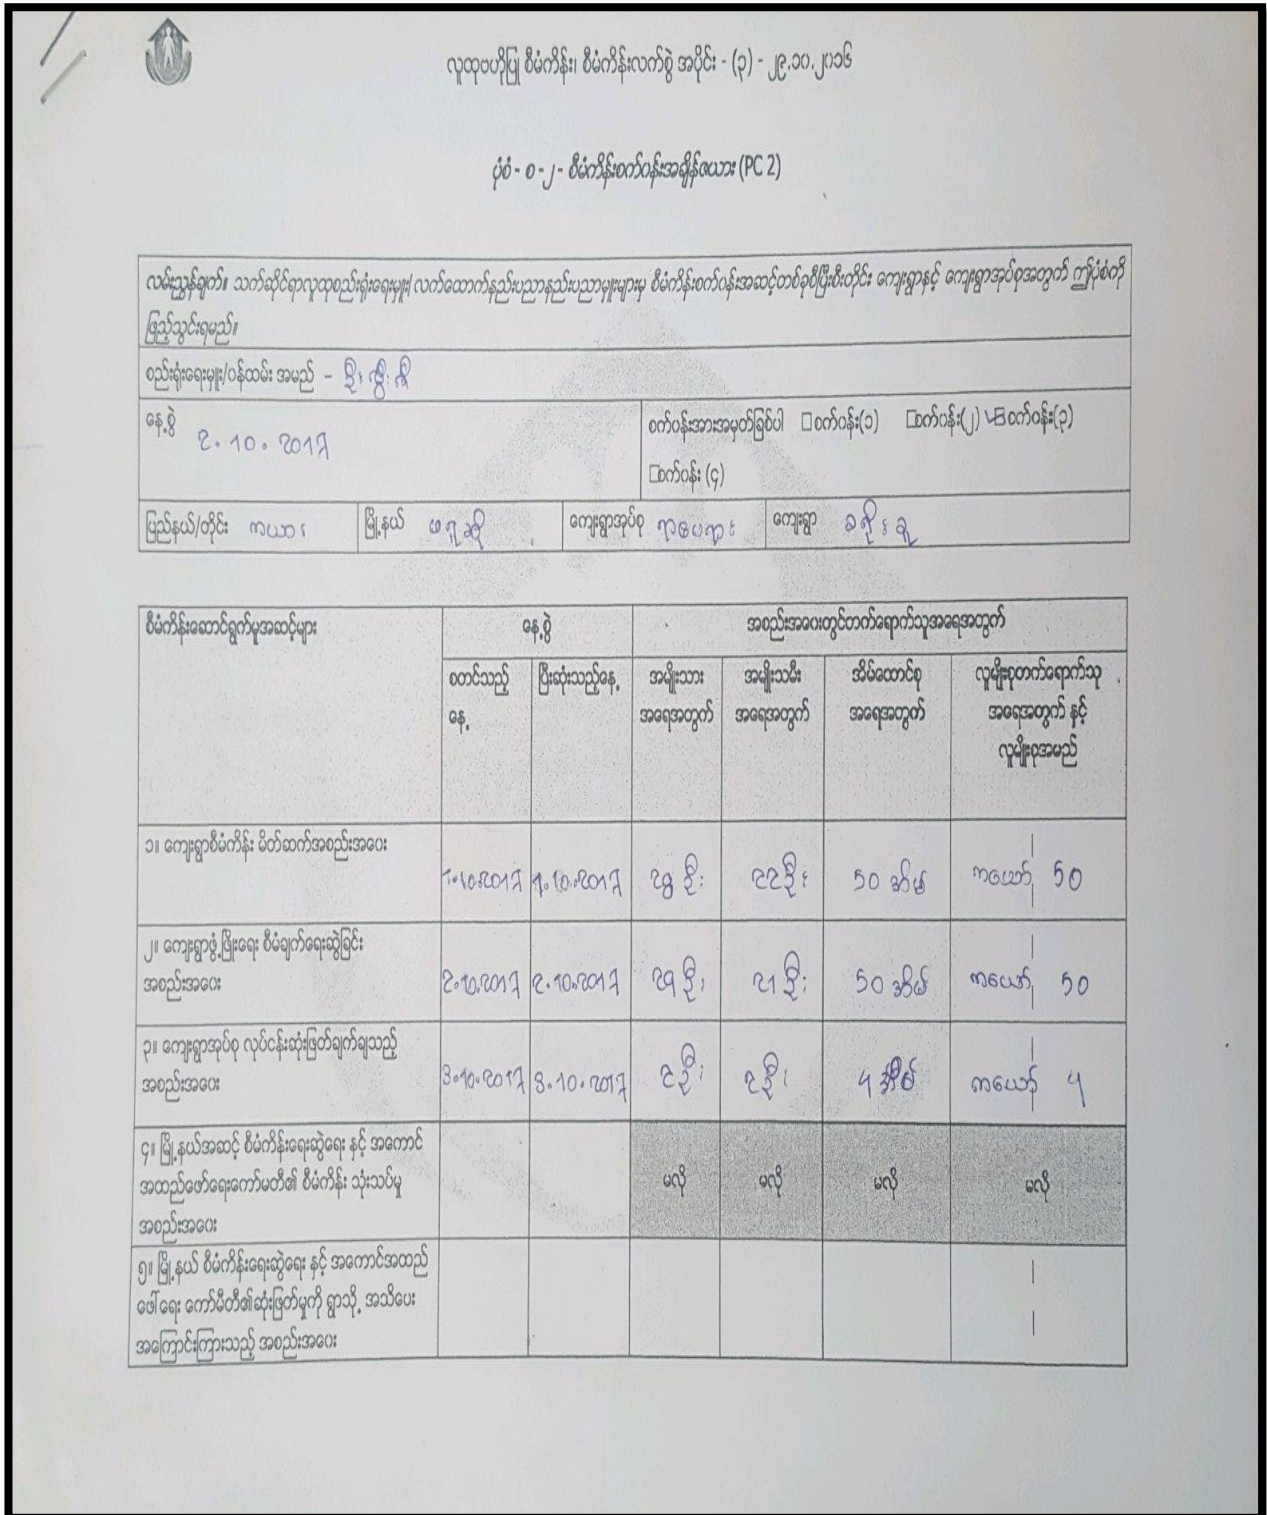 လူထုဗဟိုပြု စီမံကိန်း၊ စီမံကိန်းလက်စွဲ အပိုင်း - (၃) - ၂၉.၁၀.၂၀၁၆
ပုံစံ - စ - ၂ - စီမံကိန်းစက်ဝန်းအချိန်ဇယား (PC 2)
လမ်းညွှန်ချက်။ သက်ဆိုင်ရာလူထုစည်းရုံးရေးမှူး/လက်ထောက်နည်းပညာနည်းပညာမှူးများမှ စီမံကိန်းစက်ဝန်းအဆင့်တစ်ခုစီပြီးစီးတိုင်း ကျေးရွာနှင့် ကျေးရွာအုပ်စုအတွက် ဤပုံစံကို
ဖြည့်သွင်းရမည်။
စည်းရုံးရေးမှူး/ဝန်ထမ်း အမည် -
နေ့စွဲ 2.10.2017
စက်ဝန်းအားအမှတ်ခြစ်ပါ □စက်ဝန်း(၁) □စက်ဝန်း(၂) □စက်ဝန်း(၃)
□စက်ဝန်း (၄)
ပြည်နယ်/တိုင်း ကယား မြို့နယ် ဖရူဆို ကျေးရွာအုပ်စု ကျေးရွာ
စီမံကိန်းဆောင်ရွက်မှုအဆင့်များ နေ့စွဲ အစည်းအဝေးတွင်တက်ရောက်သူအရေအတွက်
စတင်သည့် ပြီးဆုံးသည့်နေ့ အမျိုးသား အမျိုးသမီး အိမ်ထောင်စု လူမျိုးစုတက်ရောက်သူ
နေ့ အရေအတွက် အရေအတွက် အရေအတွက် အရေအတွက် နှင့်
လူမျိုးစုအမည်
၁။ ကျေးရွာစီမံကိန်း မိတ်ဆက်အစည်းအဝေး
1.10.2017 1.10.2017 ၂၈ ဦး ၂၂ ဦး 50 အိမ် ကယော် 50
၂။ ကျေးရွာဖွံ့ဖြိုးရေး စီမံချက်ရေးဆွဲခြင်း
အစည်းအဝေး 2.10.2017 2.10.2017 29 ဦး 21 ဦး 50 အိမ် ကယော် 50
၃။ ကျေးရွာအုပ်စု လုပ်ငန်းဆုံးဖြတ်ချက်ချသည့်
အစည်းအဝေး 3.10.2017 3.10.2017 2 ဦး 2 ဦး 4 အိမ် ကယော် 4
၄။ မြို့နယ်အဆင့် စီမံကိန်းရေးဆွဲရေး နှင့် အကောင်
အထည်ဖော်ရေးကော်မတီ၏ စီမံကိန်း သုံးသပ်မှု မလို မလို မလို မလို
အစည်းအဝေး
၅။ မြို့နယ် စီမံကိန်းရေးဆွဲရေး နှင့် အကောင်အထည်
ဖေါ်ရေး ကော်မီတီ၏ဆုံးဖြတ်မှုကို ရွာသို့ အသိပေး
အကြောင်းကြားသည့် အစည်းအဝေး